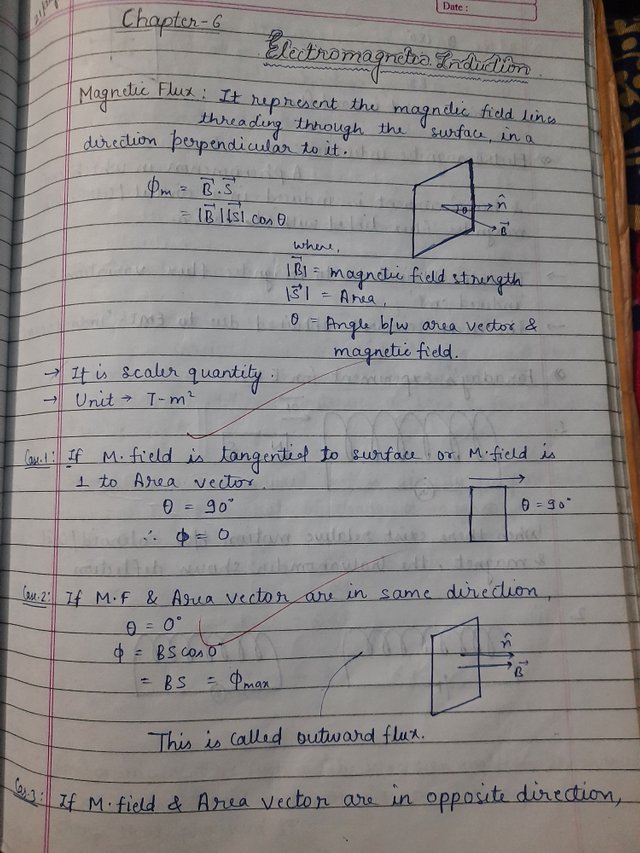 Date :
Chapter-6
Electromagnetic Induction
Magnetic Flux : It represent the magnetic field lines
threading through the surface, in a
direction perpendicular to it.
ϕm = B⃗.S⃗
= |B⃗||S⃗| cos θ
n̂
θ
B⃗
where,
|B⃗| = magnetic field strength
|S⃗| = Area,
θ = Angle b/w area vector &
magnetic field.
→ It is scaler quantity.
→ Unit → T-m²
Case.1: If M.field is tangential to surface or M.field is
⊥ to Area vector.
θ = 90°
θ = 90°
∴ ϕ = 0
Case.2: If M.F & Area vector are in same direction,
θ = 0°
ϕ = BS cos 0
= BS = ϕmax
n̂
B⃗
This is called outward flux.
Case.3: If M.field & Area vector are in opposite direction,